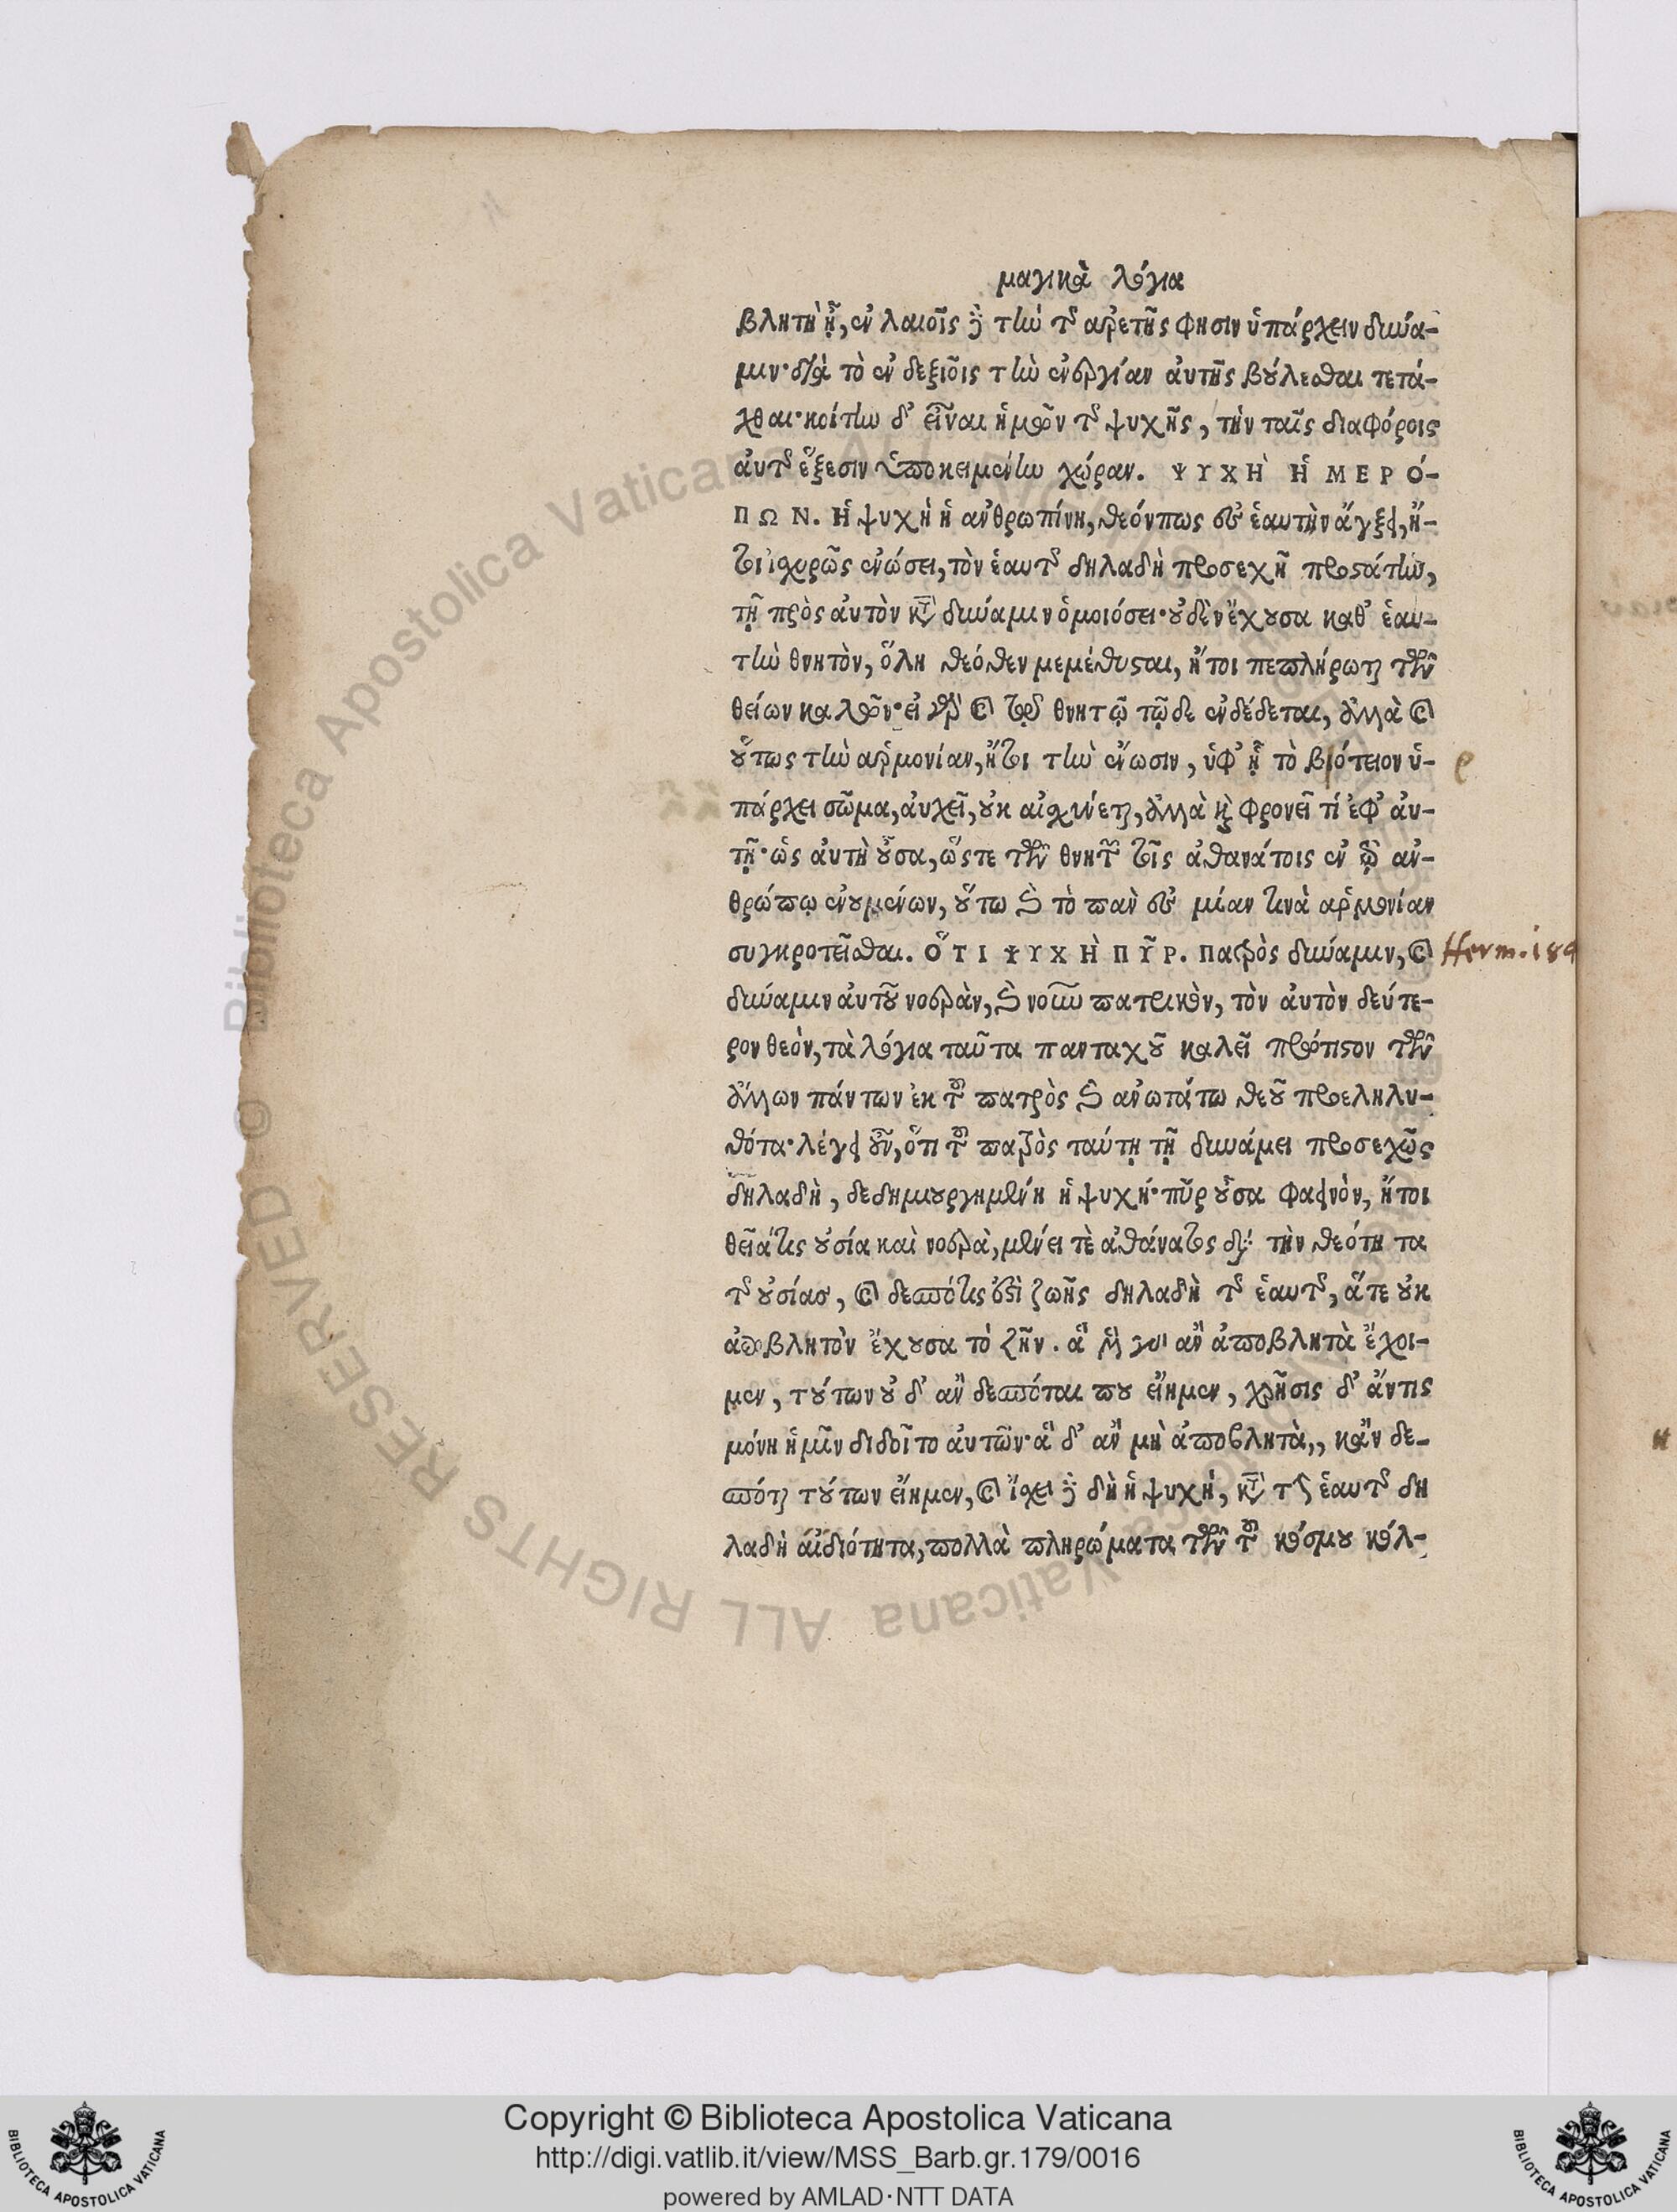 μαγικὰ λόγια
βλητὴ ᾖ, ἐν λαιοῖς δὲ τὴν τῆς ἀρετῆς φησιν ὑπάρχειν δύνα-
μιν· διὰ τὸ ἐν δεξιοῖς τὴν ἐνέργειαν αὐτῆς βούλεσθαι τετά-
χθαι· κοίτην δ' εἶναι ἡμῶν τῆς ψυχῆς, τὴν ταῖς διαφόροις
αὐτῆς ἕξεσιν ὑποκειμένην χώραν. ΨΥΧῊ Ἡ ΜΕΡΌ-
ΠΩΝ. Ἡ ψυχὴ ἡ ἀνθρωπίνη, θεόν πως εἰς ἑαυτὴν ἄγξει, ἤ-
τοι ἰσχυρῶς ἑνώσει, τὸν ἑαυτῆς δηλαδὴ προσεχῆ προστάτην,
τῇ πρὸς αὐτὸν κατὰ δύναμιν ὁμοιόσει· οὐδὲν ἔχουσα καθ' ἑαυ-
τὴν θνητὸν, ὅλη θεόθεν μεμέθυσται, ἤτοι πεπλήρωται τῶν
θείων καλῶν· εἰ γὰρ καὶ τῷ θνητῷ τῷδε ἐνδέδεται, ἀλλὰ καὶ
οὕτως τὴν ἁρμονίαν, ἤτοι τὴν ἕνωσιν, ὑφ' ᾗ τὸ βιότειον ὑ-
πάρχει σῶμα, αὐχεῖ, οὐκ αἰσχύνεται, ἀλλὰ καὶ φρονεῖ τί ἐφ' αὐ-
τῇ· ὡς αὐτὴ οὖσα, ὥστε τῶν θνητῶν τοῖς ἀθανάτοις ἐν τῷ ἀν-
θρώπῳ ἑνουμένων, οὕτω καὶ τὸ πᾶν εἰς μίαν τινὰ ἁρμονίαν
συγκροτεῖσθαι. ὍΤΙ ΨΥΧῊ ΠΥ͂Ρ. Πατρὸς δύναμιν, καὶ
δύναμιν αὐτοῦ νοερὰν, καὶ νοῦν πατρικὸν, τὸν αὐτὸν δεύτε-
ρον θεὸν, τὰ λόγια ταῦτα πανταχοῦ καλεῖ πρότιστον τῶν
ἄλλων πάντων ἐκ τοῦ πατρὸς καὶ ἀνωτάτω θεοῦ προεληλυ-
θότα· λέγει οὖν, ὅτι τοῦ πατρὸς ταύτῃ τῇ δυνάμει προσεχῶς
δηλαδὴ, δεδημιουργημένη ἡ ψυχή· πῦρ οὖσα φαεινὸν, ἤτοι
θεῖά τις οὐσία καὶ νοερὰ, μένει τὲ ἀθάνατος διὰ τὴν θεότητα
τῆς οὐσίας, καὶ δεσπότις ἐστὶ ζωῆς δηλαδὴ τῆς ἑαυτῆς, ἅτε οὐκ
ἀποβλητὸν ἔχουσα τὸ ζῆν. ἃ μέν γοι ἂν ἀποβλητὰ ἔχοι-
μεν, τούτων οὐδ' ἂν δεσπόται που εἴημεν, χρῆσις δ' ἄν τις
μόνη ἡμῖν διδοῖτο αὐτῶν· ἃ δ' ἂν μὴ ἀποβλητὰ,, κἂν δε-
σπόται τούτων εἴημεν, καὶ ἴσχει δὲ δὴ ἡ ψυχή, κατὰ τὴν ἑαυτῆς δη
λαδὴ ἀϊδιότητα, πολλὰ πληρώματα τῶν τοῦ κόσμου κόλ-
ρ
Herm. 189
Copyright © Biblioteca Apostolica Vaticana
http://digi.vatlib.it/view/MSS_Barb.gr.179/0016
powered by AMLAD·NTT DATA
BIBLIOTECA APOSTOLICA VATICANA
BIBLIOTECA APOSTOLICA VATICANA